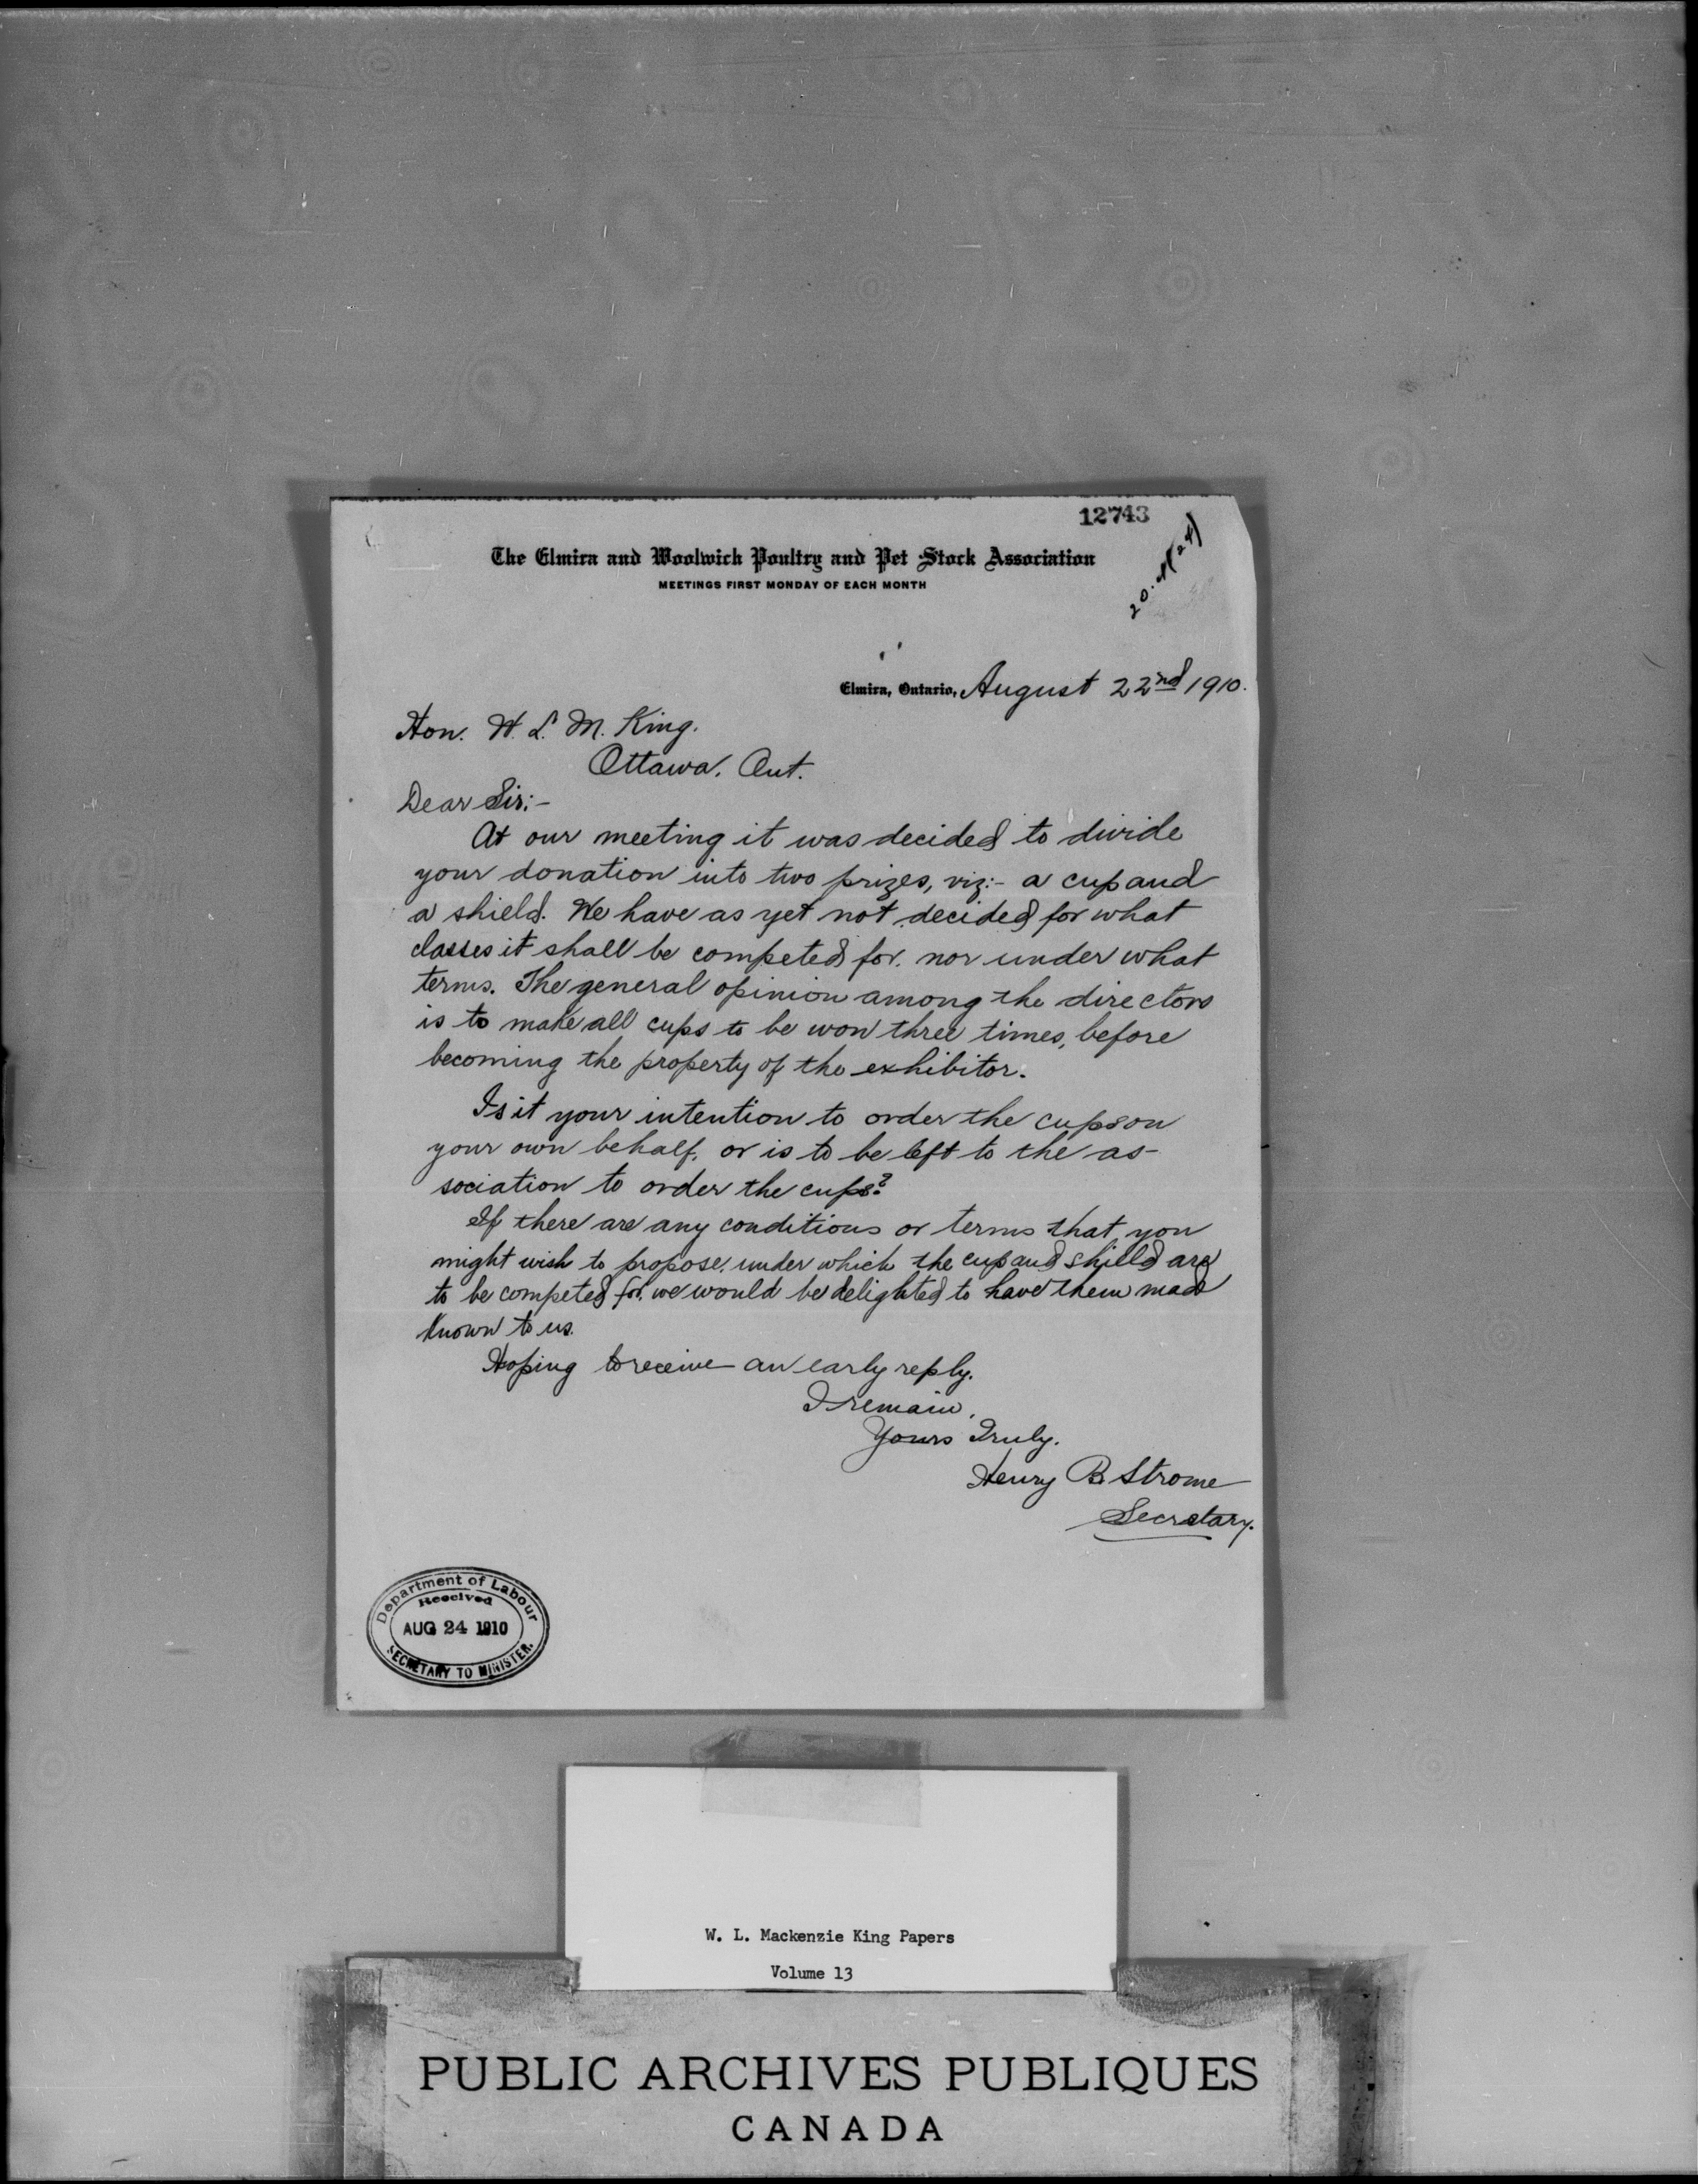 12743
20.4(24)
The Elmira and Woolwich Poultry and Pet Stock Association
MEETINGS FIRST MONDAY OF EACH MONTH
Elmira, Ontario, August 22nd 1910.
Hon. W. L. M. King.
Ottawa, Ont.
Dear Sir:-
At our meeting it was decided to divide
your donation into two prizes, viz:- a cup and
a shield. We have as yet not decided for what
classes it shall be competed for, nor under what
terms. The general opinion among the directors
is to make all cups to be won three times, before
becoming the property of the exhibitor.
Is it your intention to order the cups on
your own behalf, or is to be left to the as-
sociation to order the cups?
If there are any conditions or terms that you
might wish to propose, under which the cup and shield are
to be competed for, we would be delighted to have them made
known to us.
Hoping to receive an early reply.
I remain,
Yours Truly.
Henry B. Strome
Secretary.
Department of Labour
Received
AUG 24 1910
SECRETARY TO MINISTER.
W. L. Mackenzie King Papers
Volume 13
PUBLIC ARCHIVES PUBLIQUES
CANADA